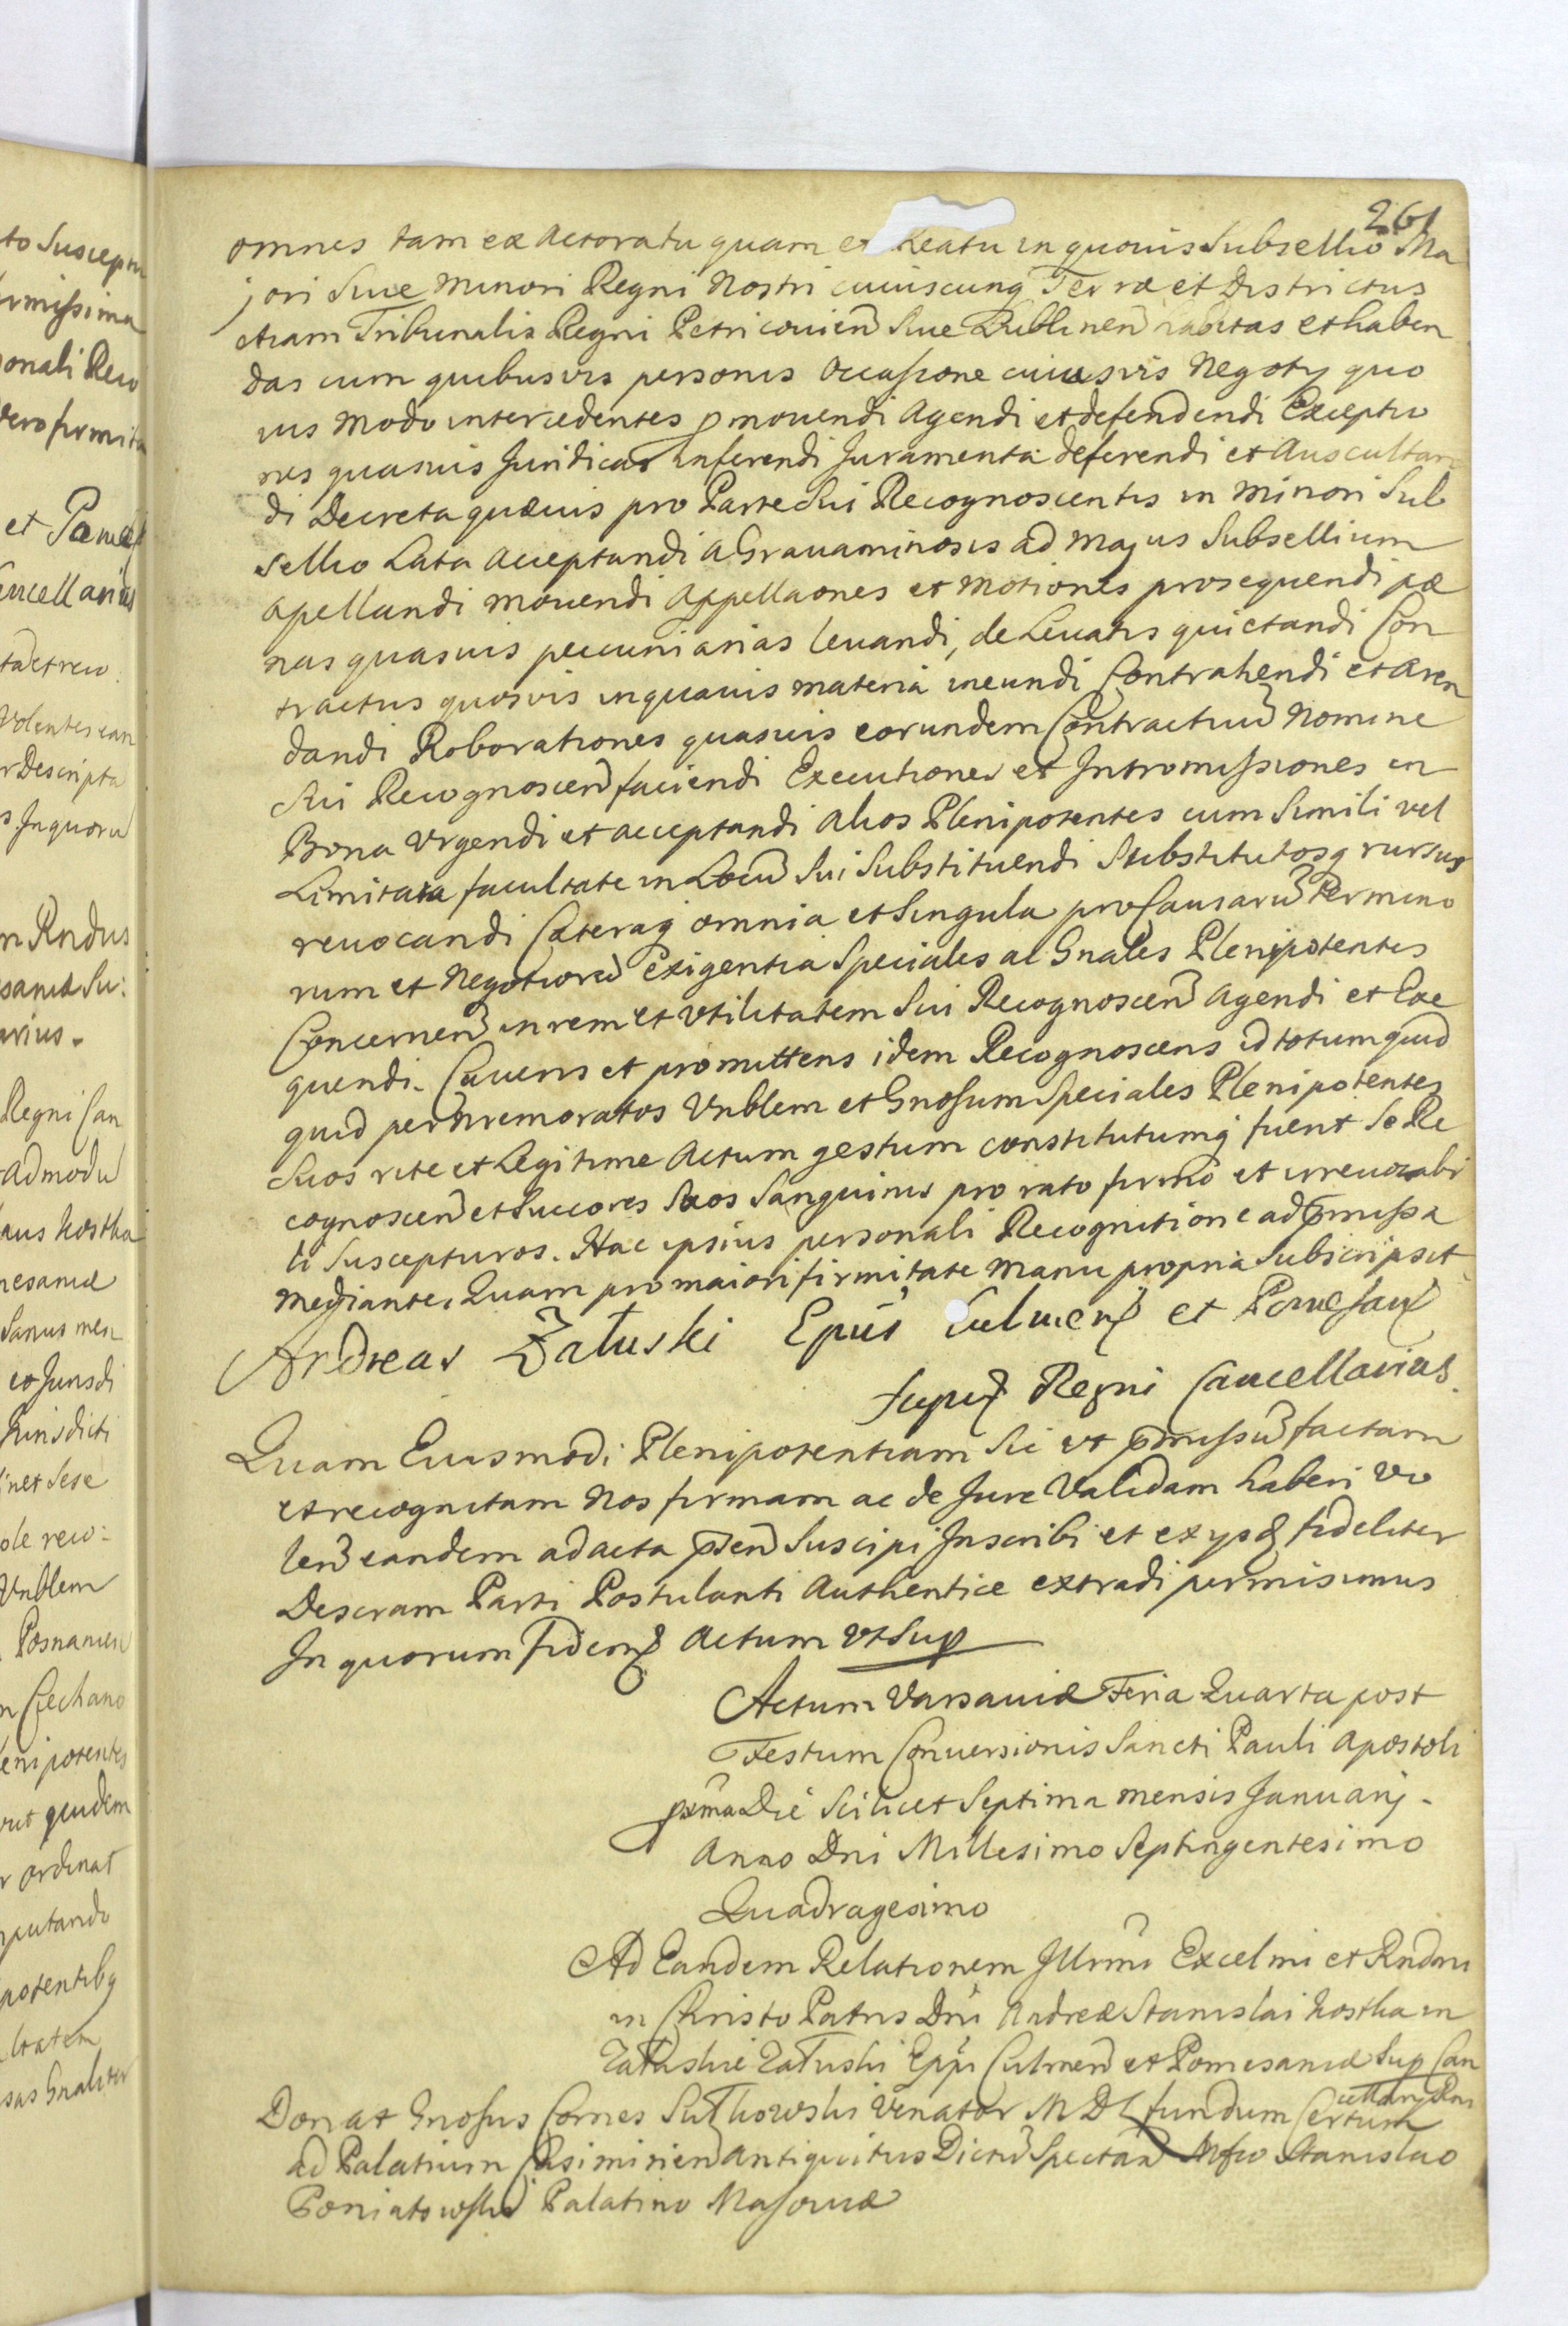 261
omnes tam ex Actoratu quam ex Reatu in quovis Subsellio Ma
jori Sive Minori Regni Nostri cuiuscunq Terræ et Districtus
etiam Tribunalis Regni Petricovien Sive Lublinen habitas et haben
das cum quibusvis personis Occasione cuiusvis Negoty quo
vis Modo intercedentes pmovendi Agendi et defendendi Exceptio
nes quasvis Juridicas inferendi Juramenta deferendi et Auscultan
di Decreta quævis pro Parte Sui Recognoscentis in Minori Sub
sellio Lata Acceptandi A Gravaminosis ad Majus Subsellium
Apellandi Movendi Appellaones et Motiones prosequendi pæ
nas quasvis pecuniarias levandi, de Levatis quietandi Con
tractus quosvis in quavis materia ineundi Contrahendi et Aren
dandi Roborationes quasvis eorundem Contractuu Nomine
Sui Recognoscen faciendi Executiones et Intromissiones in
Bona Urgendi et acceptandi Alios Plenipotentes cum Simili vel
Limitata facultate in Locu Sui Substituendi Substitutosq rursus
revocandi Cæteraq omnia et Singula pro Causaru Termino
rum et Negotioru Exigentia Speciales al Gnales Plenipotentes
Concernen in rem et Utilitatem Sui Recognoscen Agendi et Exe
quendi. Cavens et promittens idem Recognoscens id totum quid
quid per memoratos Vnblem et Gnosum Speciales Plenipotentes
Suos rite et Legitime Actum gestum constitutumq fuerit Se Re
cognoscen et Succores Suos Sanguinis pro rato firmo et irrevocabi
li Suscepturos. Hac ipsius personali Recognitione ad pmissa
Mediante. Quam pro maiori firmitate Manu propria Subscripsit
Andreas Załuski Epus Culmens et Pomesan
Supr Regni Cancellarius.
Quam Eiusmodi Plenipotentiam Sic ut pmissu factam
et recognitam Nos firmam ac de Jure Validam haberi Vo
len eandem ad acta psen Suscipi Inscribi et ex ys fideliter
Descram Parti Postulanti Authentice extradi permisimus
In quorum fidem Actum ut Sup
Actum Varsaviæ Feria Quarta post
Festum Conversionis Sancti Pauli Apostoli
pxma Die Scilicet Septima Mensis Januarij.
Anno Dni Millesimo Septingentesimo
Quadragesimo
Ad Eandem Relationem Illrmi Excelmi et Rndmi
in Christo Patris Dni Andreæ Stanislai Kostka in
Załuskie Załuski Eppi Culmen et Pomesaniæ Sup Can
cellarij Rni
Donat Gnosus Comes Sułkowski Venator M D L fundum Certum
ad Palatium Casimirien antiquitus Dictu Spectan Mfco Stanislao
Poniatowski Palatino Masoviæ